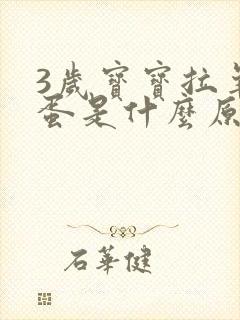 3歲寶寶拉
蛋是什麼原
石華健